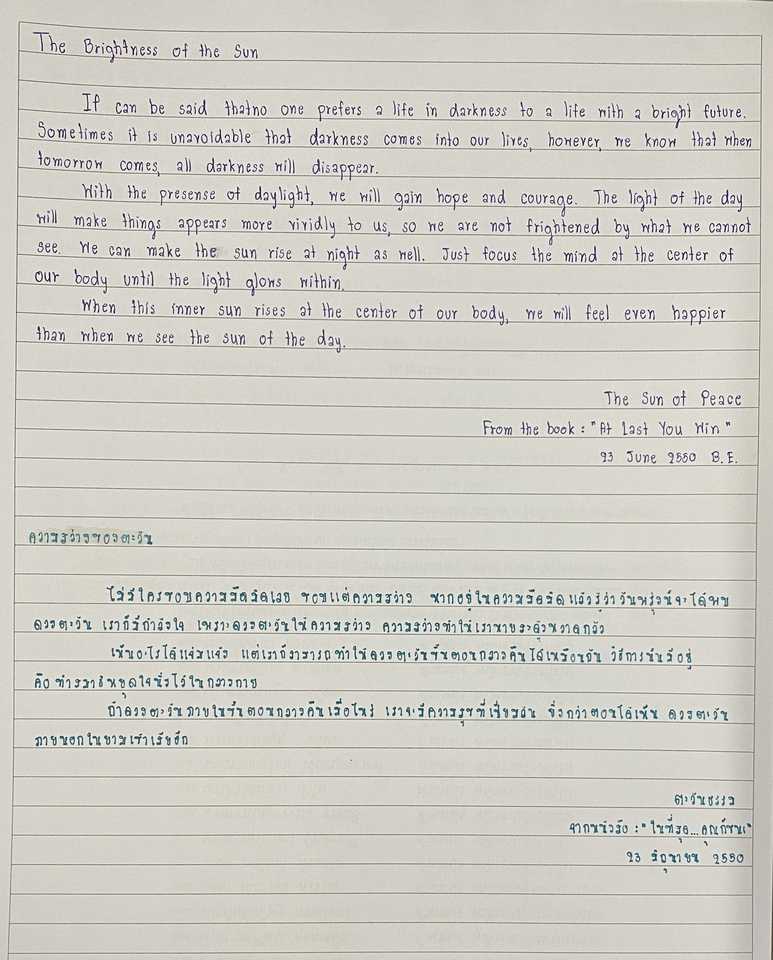 The Brightness of the Sun
If can be said thatno one prefers a life in darkness to a life with a bright future.
Sometimes it is unavoidable that darkness comes into our lives, however, we know that when
tomorrow comes, all darkness will disappear.
With the presense of daylight, we will gain hope and courage. The light of the day
will make things appears more vividly to us, so we are not frightened by what we cannot
see. We can make the sun rise at night as well. Just focus the mind at the center of
our body until the light glows within.
When this inner sun rises at the center of our body, we will feel even happier
than when we see the sun of the day.
The Sun of Peace
From the book : "At Last You Win"
23 June 2550 B.E.
ความสว่างของตะวัน
ไม่มีใครชอบความมืดมิดเลย ชอบแต่ความสว่าง หากอยู่ในความมืดมิดแล้วรู้ว่าวันพรุ่งนี้จะได้พบ
ดวงตะวัน เราก็มีกำลังใจ เพราะดวงตะวันให้ความสว่าง ความสว่างทำให้เราหายสะดุ้งหวาดกลัว
เห็นอะไรได้แจ่มแจ้ง แต่เราก็สามารถทำให้ดวงตะวันขึ้นตอนกลางคืนได้เหมือนกัน วิธีการนั้นมีอยู่
คือ ทำสมาธิหยุดใจนิ่งไว้ในกลางกาย
ถ้าดวงตะวันภายในขึ้นตอนกลางคืนเมื่อไหร่ เราจะมีความสุขที่เยี่ยมกัน ยิ่งกว่าตอนได้เห็น ดวงตะวัน
ภายนอกในยามเช้าเสียอีก
ตะวันธรรม
จากหนังสือ : "ในที่สุด... คุณก็ชนะ"
23 มิถุนายน 2550